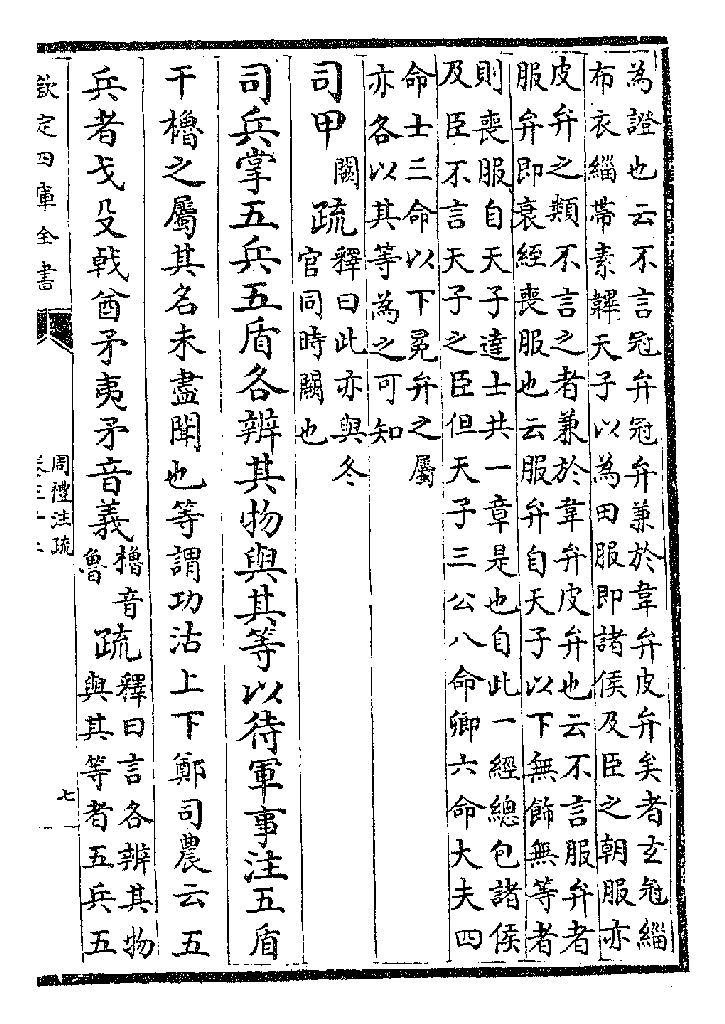 為證也云不言冠弁冠弁兼於韋弁皮弁矣者玄冠緇
布衣緇帶素韠天子以為田服即諸侯及臣之朝服亦
皮弁之類不言之者兼於韋弁皮弁也云不言服弁者
服弁即衰絰喪服也云服弁自天子以下無飾無等者
則喪服自天子達士共一章是也自此一經總包諸侯
及臣不言天子之臣但天子三公八命卿六命大夫四
命士三命以下冕弁之屬
亦各以其等為之可知
司甲
闕
疏
釋曰此亦與冬
官同時闕也
司兵掌五兵五盾各辨其物與其等以待軍事注五盾
干櫓之屬其名未盡聞也等謂功沽上下鄭司農云五
兵者戈殳戟酋矛夷矛音義
櫓音
魯
疏
釋曰言各辨其物
與其等者五兵五
欽定四庫全書
周禮注疏
七